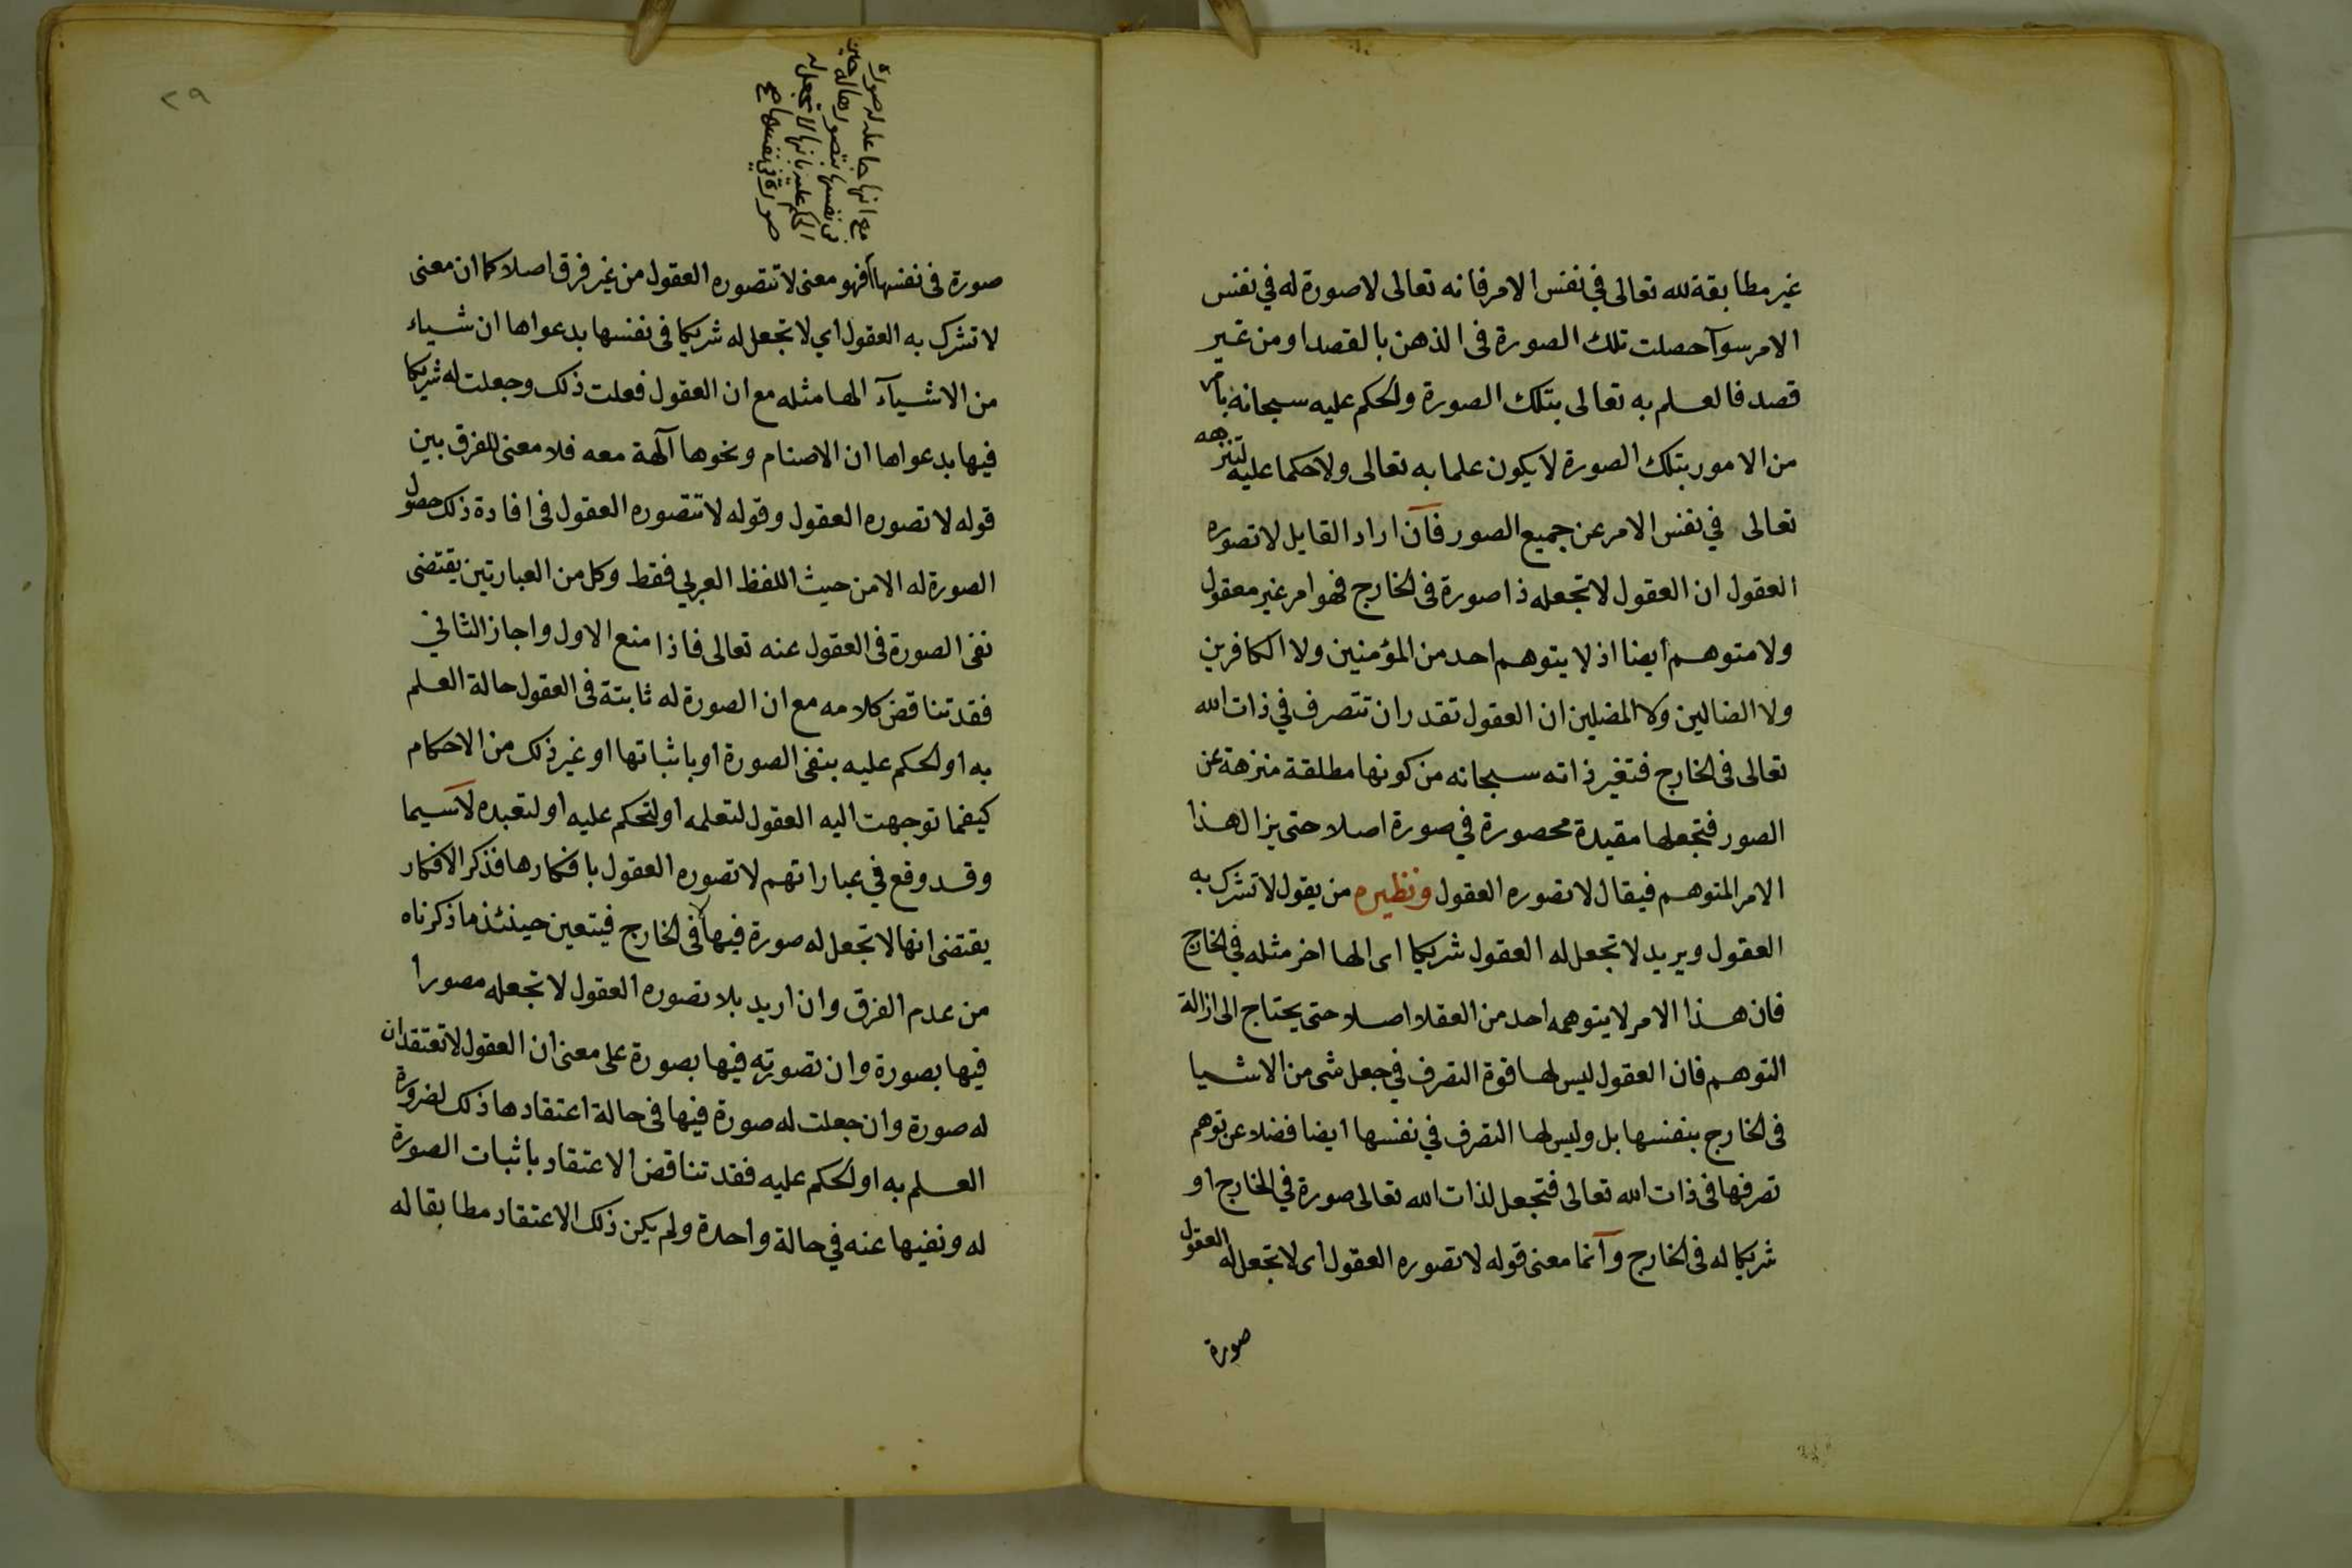 غير مطابقة لله تعالى في نفس الامر فانه تعالى لا صورة له في نفس
الامر سوآ حصلت تلك الصورة فى الذهن بالقصد او من غير
قصد فالعلم به تعالى بتلك الصورة والحكم عليه سبحانه بامر
من الامور بتلك الصورة لا يكون علما به تعالى ولا حكما عليه لتنزهه
تعالى في نفس الامر عن جميع الصور فان اراد القايل لا تصوره
العقول ان العقول لا تجعله ذا صورة فى الخارج فهو امر غير معقول
ولا متوهم أيضا اذ لا يتوهم احد من المؤمنين ولا الكافرين
ولا الضالين ولا المضلين ان العقول تقدر ان تتصرف في ذات الله
تعالى فى الخارج فتغير ذاته سبحانه من كونها مطلقة منزهة عن
الصور فتجعلها مقيدة محصورة في صورة اصلا حتى يزال هذا
الامر المتوهم فيقال لا تصوره العقول ونظيره من يقول لا تشرك به
العقول ويريد لا تجعل له العقول شريكا اى الها اخر مثله في الخارج
فان هذا الامر لا يتوهمه احد من العقلا اصلا حتى يحتاج الى ازالة
التوهم فان العقول ليس لها قوة التصرف في جعل شى من الاشيا
فى الخارج بنفسها بل وليس لها التصرف في نفسها ايضا فضلا عن توهم
تصرفها فى ذات الله تعالى فتجعل لذات الله تعالى صورة في الخارج او
شريكا له فى الخارج وآنما معنى قوله لا تصوره العقول اى لا تجعل له العقول
صورة
٢٩
مع انها جاعله له صورة
في نفسها بتصورها له حين
الحكم عليه بانها لا تجعل له
صورة في نفسها صح
صورة فى نفسها فهو معنى لا تتصوره العقول من غير فرق اصلا كما ان معنى
لا تشرك به العقول اي لا تجعل له شريكا فى نفسها بدعواها ان شياء
من الاشيآء الها مثله مع ان العقول فعلت ذلك وجعلت له شريكا
فيها بدعواها ان الاصنام ونحوها آلهة معه فلا معنى للفرق بين
قوله لا تصوره العقول وقوله لا تتصوره العقول فى افادة ذلك حصول
الصورة له الا من حيث اللفظ العربي فقط وكل من العبارتين يقتضى
نفى الصورة فى العقول عنه تعالى فاذا منع الاول واجاز الثاني
فقد تناقض كلامه مع ان الصورة له ثابتة فى العقول حالة العلم
به او الحكم عليه بنفى الصورة او باثباتها او غير ذلك من الاحكام
كيفما توجهت اليه العقول لتعلمه او لتحكم عليه او لتعبده لآسيما
وقد وقع في عباراتهم لا تصوره العقول بافكارها فذكر الافكار
يقتضى انها لا تجعل له صورة فيها لا فى الخارج فيتعين حينئذ ما ذكرناه
من عدم الفرق وان اريد بلا تصوره العقول لا تجعله مصورا
فيها بصورة وان تصورته فيها بصورة على معنى ان العقول لا تعتقد ان
له صورة وان جعلت له صورة فيها فى حالة اعتقادها ذلك لضرورة
العلم به او الحكم عليه فقد تناقض الاعتقاد باثبات الصورة
له ونفيها عنه في حالة واحدة ولم يكن ذلك الاعتقاد مطابقا له